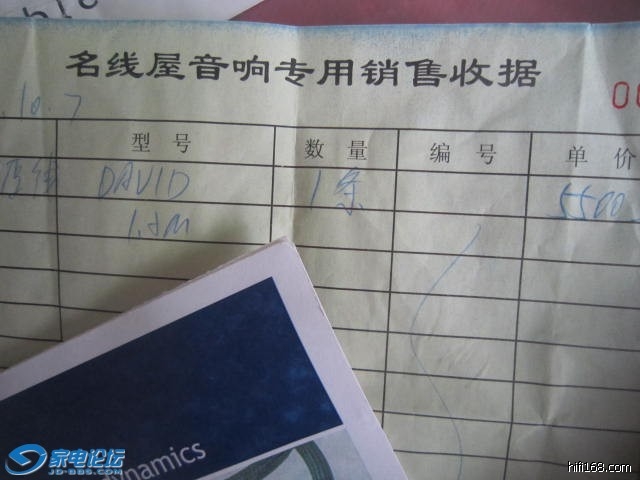 名线屋音响专用销售收据
00
.10.7
型号 数量 编号 单价
DAVID 1条 5500
1.5M
ynamics
家电论坛
JD-BBS.COM
hifi168.com